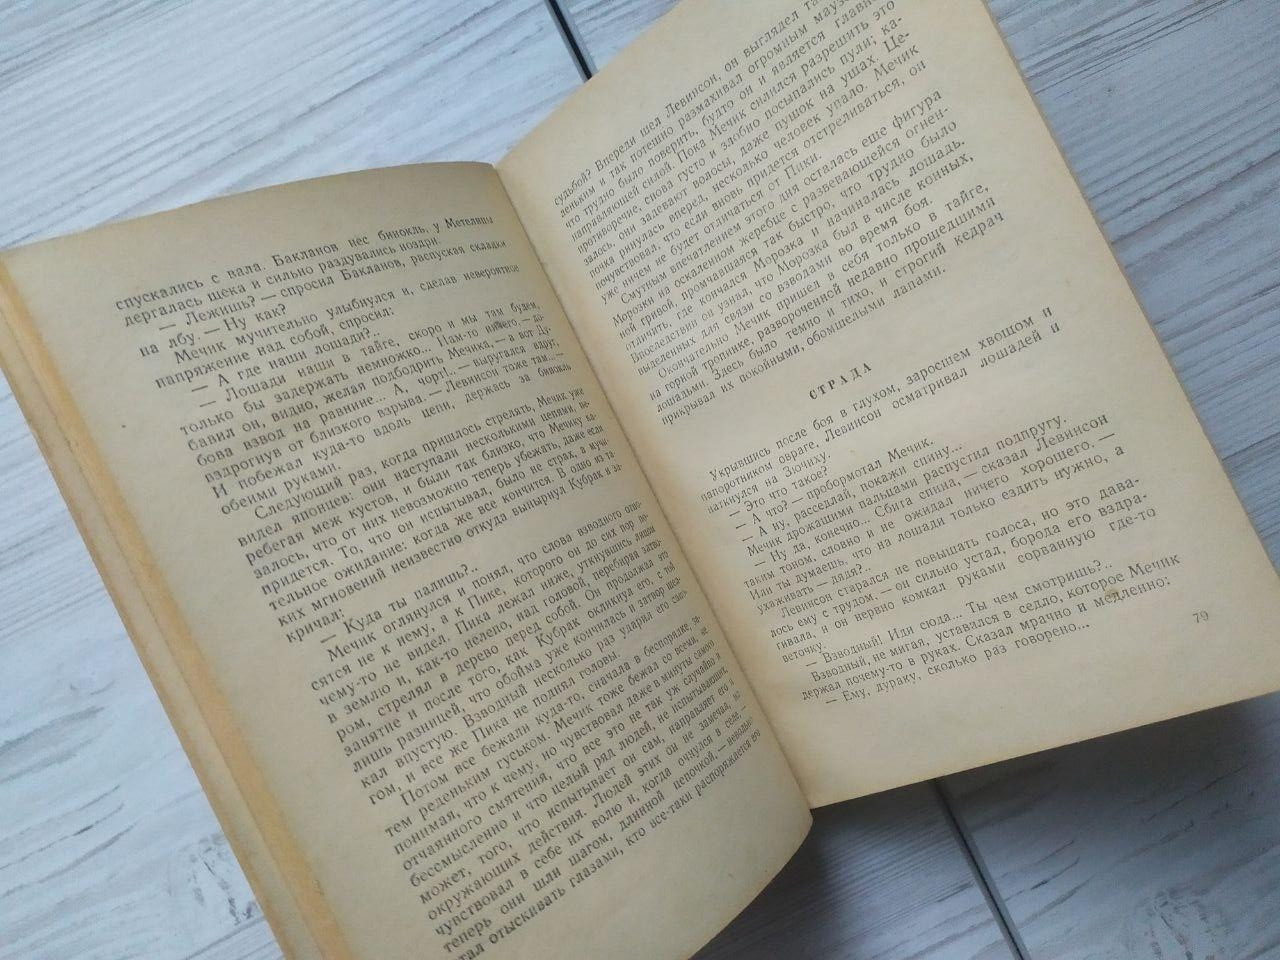 спускались с вала. Бакланов нёс бинокль, у Метелицы
дергалась щека и сильно раздувались ноздри.
— Лежишь? — спросил Бакланов, распуская складки
на лбу. — Ну как?
Мечик мучительно улыбнулся и, сделав невероятное
напряжение над собой, спросил:
— А где наши лошади?..
— Лошади наши в тайге, скоро и мы там будем,
только бы задержать немножко... Нам-то ничего, — до-
бавил он, видно, желая подбодрить Мечика, — а вот Ду-
бова взвод на равнине... А, чорт!.. — выругался вдруг,
вздрогнув от близкого взрыва. — Левинсон тоже там... —
И побежал куда-то вдоль цепи, держась за бинокль
обеими руками.
Следующий раз, когда пришлось стрелять, Мечик уже
видел японцев: они наступали несколькими цепями, пе-
ребегая меж кустов, и были так близко, что Мечику ка-
залось, что от них невозможно теперь убежать, даже если
придется. То, что он испытывал, было не страх, а мучи-
тельное ожидание: когда же все кончится. В одно из та-
ких мгновений неизвестно откуда вынырнул Кубрак и за-
кричал:
— Куда ты палишь?..
Мечик оглянулся и понял, что слова взводного отно-
сятся не к нему, а к Пике, которого он до сих пор по-
чему-то не видел. Пика лежал ниже, уткнувшись лицом
в землю и, как-то нелепо, над головой, перебирая затво-
ром, стрелял в дерево перед собой. Он продолжал это
занятие и после того, как Кубрак окликнул его, с той
лишь разницей, что обойма уже кончилась и затвор щел-
кал впустую. Взводный несколько раз ударил его сапо-
гом, и все же Пика не поднял головы.
Потом все бежали куда-то, сначала в беспорядке, за-
тем реденьким гуськом. Мечик тоже бежал со всеми, не
понимая, что к чему, но чувствовал даже в минуты самого
отчаянного смятения, что все это не так уж случайно и
бессмысленно и что целый ряд людей, не испытывавших,
может, того, что испытывает он сам, направляет его и
окружающих действия. Людей этих он не замечал, но
чувствовал в себе их волю и, когда очнулся в селе, —
теперь они шли шагом, длинной цепочкой — невольно
стал отыскивать глазами, кто все-таки распоряжается его
судьбой? Впереди шел Левинсон, он выглядел
деньким и так потешно размахивал огромным
что трудно было поверить, будто он и является главной
направляющей силой. Пока Мечик силился разрешить это
противоречие, снова густо и злобно посыпались пули; ка-
залось, они задевают волосы, даже пушок на ушах. Це-
почка ринулась вперед, несколько человек упало. Мечик
почувствовал, что если вновь придется отстреливаться, он
уже ничем не будет отличаться от Пики.
Смутным впечатлением этого дня осталась еще фигура
Морозки на оскаленном жеребце с развевающейся огнен-
ной гривой, промчавшаяся так быстро, что трудно было
отличить, где кончался Морозка и начиналась лошадь.
Впоследствии он узнал, что Морозка был в числе конных,
выделенных для связи со взводами во время боя.
Окончательно Мечик пришел в себя только в тайге,
на горной тропинке, развороченной недавно прошедшими
лошадьми. Здесь было темно и тихо, и строгий кедрач
прикрывал их покойными, обомшелыми лапами.
СТРАДА
Укрывшись после боя в глухом, заросшем хвощом и
папоротником овраге, Левинсон осматривал лошадей и
наткнулся на Зючиху.
— Это что такое?
— А что? — пробормотал Мечик.
— А ну, расседлай, покажи спину...
Мечик дрожащими пальцами распустил подпругу.
— Ну да, конечно... Сбита спина, — сказал Левинсон
таким тоном, словно и не ожидал ничего хорошего. —
Или ты думаешь, что на лошади только ездить нужно, а
ухаживать — дядя?..
Левинсон старался не повышать голоса, но это дава-
лось ему с трудом, — он сильно устал, борода его вздра-
гивала, и он нервно комкал руками сорванную где-то
веточку.
— Взводный! Иди сюда... Ты чем смотришь?..
Взводный, не мигая, уставился в седло, которое Мечик
держал почему-то в руках. Сказал мрачно и медленно:
— Ему, дураку, сколько раз говорено...
79